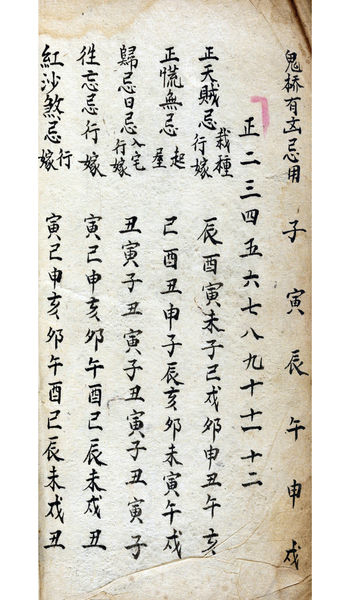 鬼桥有玄忌用 子寅辰午申戌
正二三四五六七八九十十一十二
正天賊忌 栽種 行嫁 辰酉寅未子巳戌卯申丑午亥
正慌無忌 起屋 巳酉丑申子辰亥卯未寅午戌
歸忌日忌 入宅 行嫁 丑寅子丑寅子丑寅子丑寅子
徃忘忌行嫁 寅巳申亥卯午酉巳辰未戌丑
紅沙煞忌行嫁 寅巳申亥卯午酉巳辰未戌丑